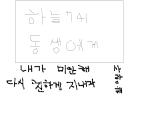 동생에게
내가 미안해
다시 친하게 지내자